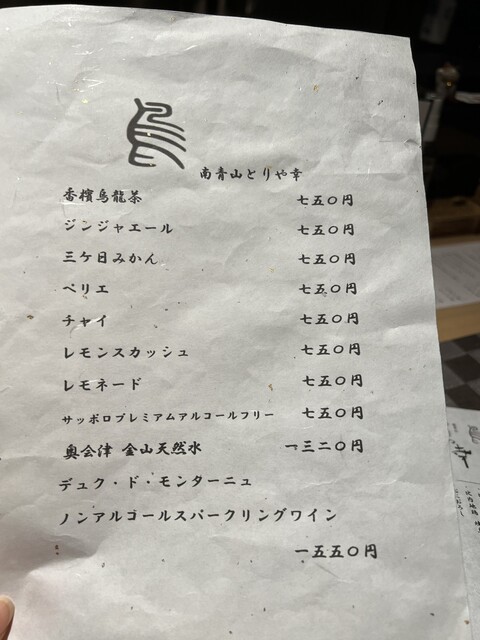 南青山とりや幸
香檳烏龍茶 七五〇円
ジンジャエール 七五〇円
三ケ日みかん 七五〇円
ペリエ 七五〇円
チャイ 七五〇円
レモンスカッシュ 七五〇円
レモネード 七五〇円
サッポロプレミアムアルコールフリー 七五〇円
奥会津 金山天然水 一三二〇円
デュク・ド・モンターニュ
ノンアルゴールスパークリングワイン
一五五〇円